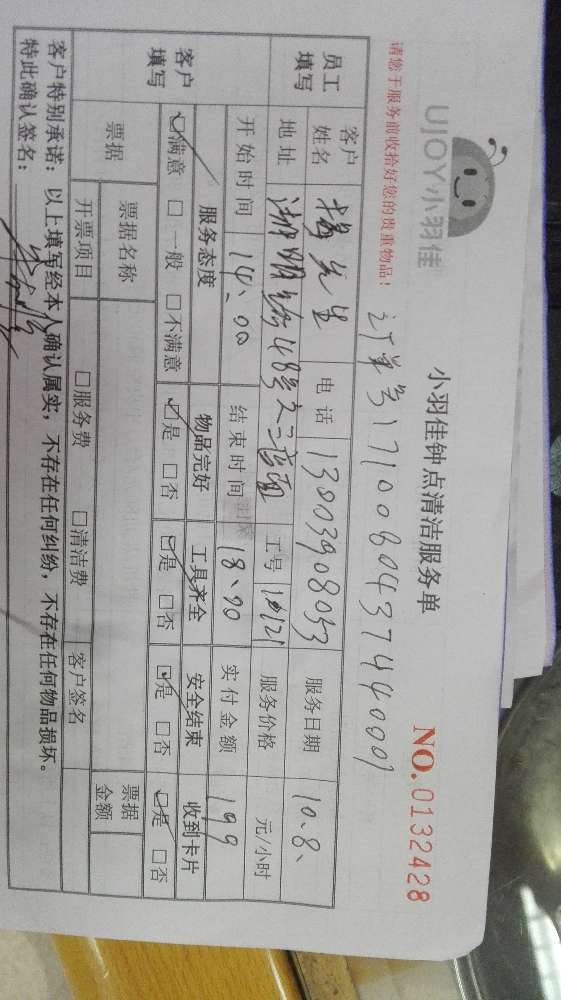 UJOY小羽佳
小羽佳钟点清洁服务单
NO.0132428
请您于服务前收拾好您的贵重物品！
订单号17100804374440001
员工填写
客户姓名 梅先生 电话 13803908053 服务日期 10、8、
地址 湖明路48号之二店面 工号 服务价格 元/小时
开始时间 14、00 结束时间 18、00 实付金额 199
客户填写
服务态度 物品完好 工具齐全 安全结束 收到卡片
☑满意 □一般 □不满意 ☑是 □否 ☑是 □否 ☑是 □否 ☑是 □否
票据 票据名称 票据金额
开票项目 □服务费 □清洁费 客户签名
客户特别承诺：以上填写经本人确认属实，不存在任何纠纷，不存在任何物品损坏。
特此确认签名：